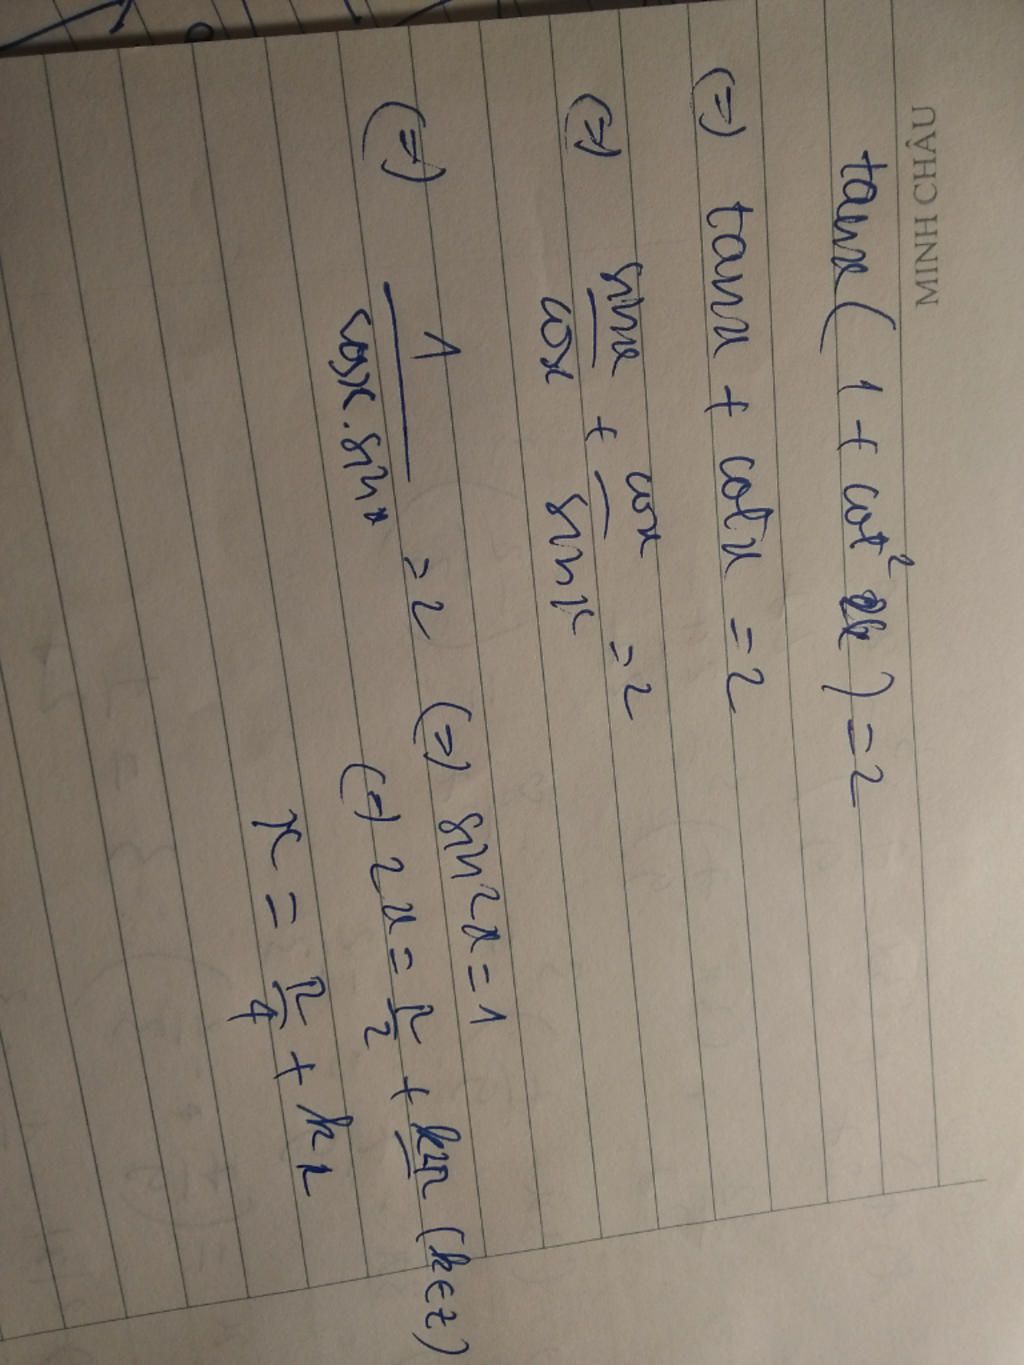 MINH CHÂU
tanx ( 1 + cot² x ) = 2
(=) tanx + cotx = 2
(=) sinx/cosx + cosx/sinx = 2
(=) 1/cosx.sinx = 2 (=) sin2x = 1
(=) 2x = π/2 + k2π (k∈Z)
x = π/4 + kπ